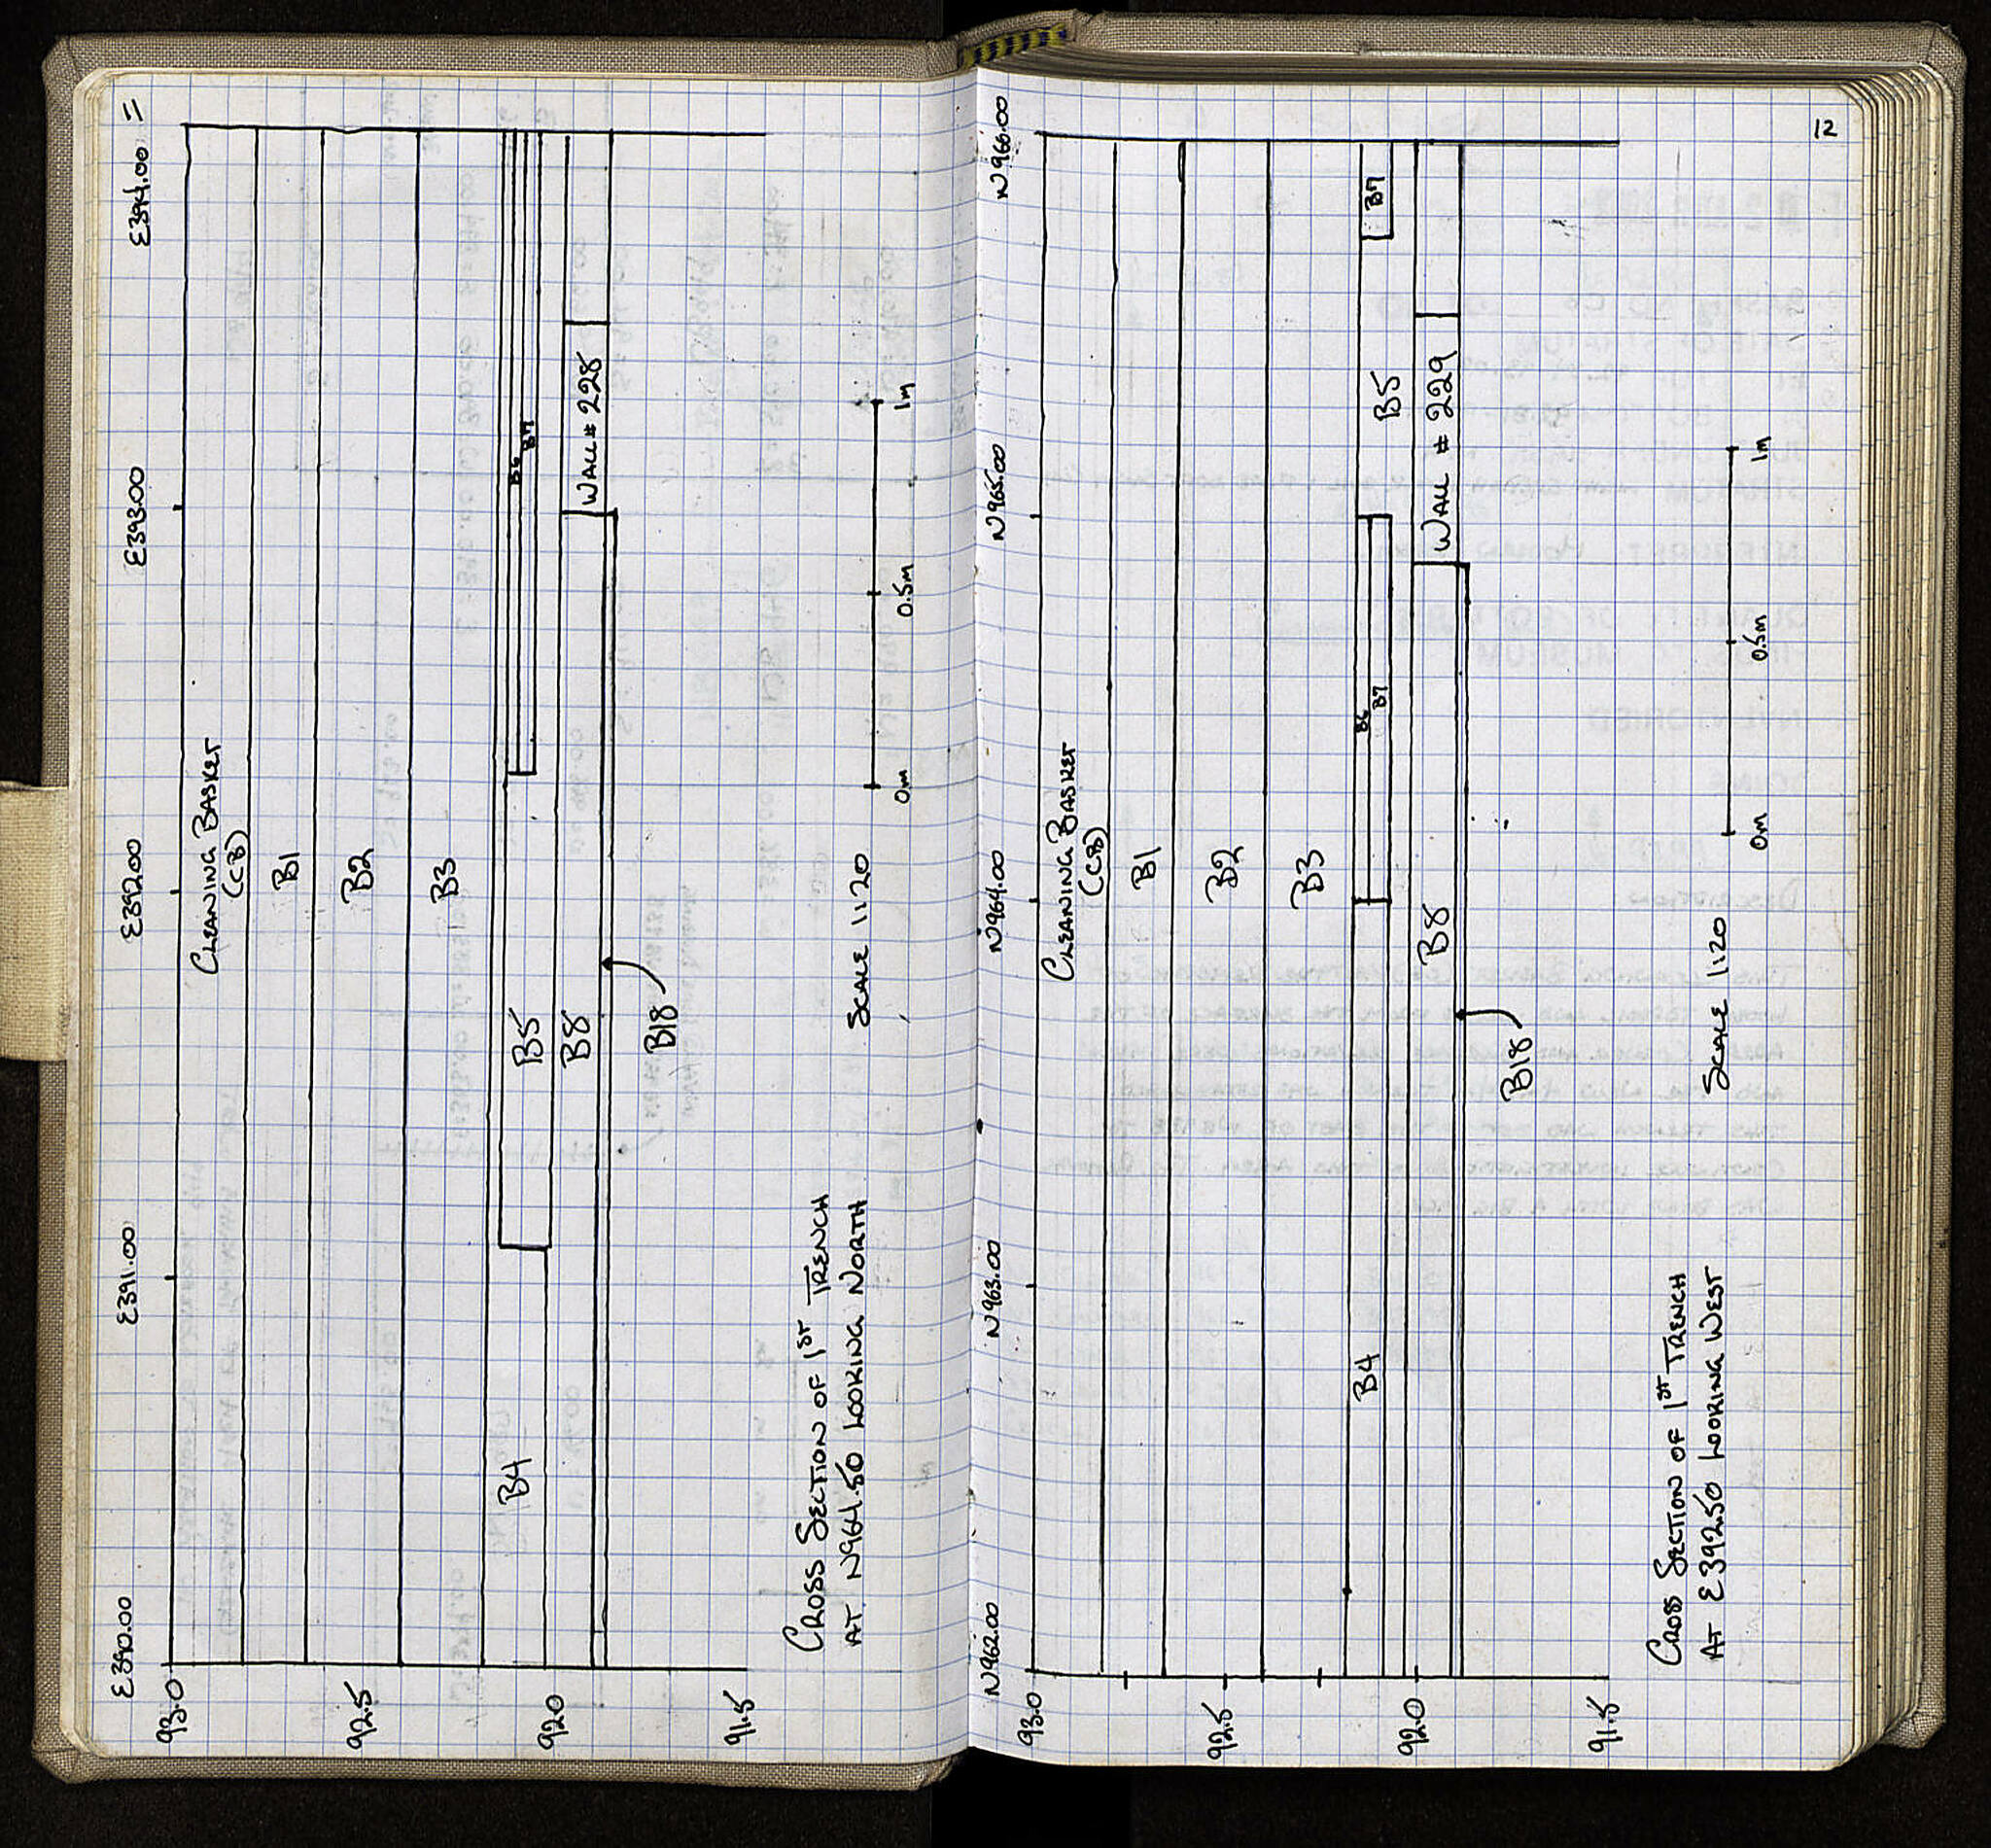 11
E390.00 E391.00 E392.00 E393.00 E394.00
93.0
92.5
92.0
91.5
CLEANING BASKET
(CB)
B1
B2
B3
B6
B7
B4
B5
B8
WALL # 228
B18
CROSS SECTION OF 1ST TRENCH
AT N964.50 LOOKING NORTH
SCALE 1:20
0m 0.5m 1m
12
N962.00 N963.00 N964.00 N965.00 N966.00
93.0
92.5
92.0
91.5
CLEANING BASKET
(CB)
B1
B2
B3
B4
B6
B7
B5
B7
B8
WALL # 229
B18
CROSS SECTION OF 1ST TRENCH
AT E392.50 LOOKING WEST
SCALE 1:20
0m 0.5m 1m